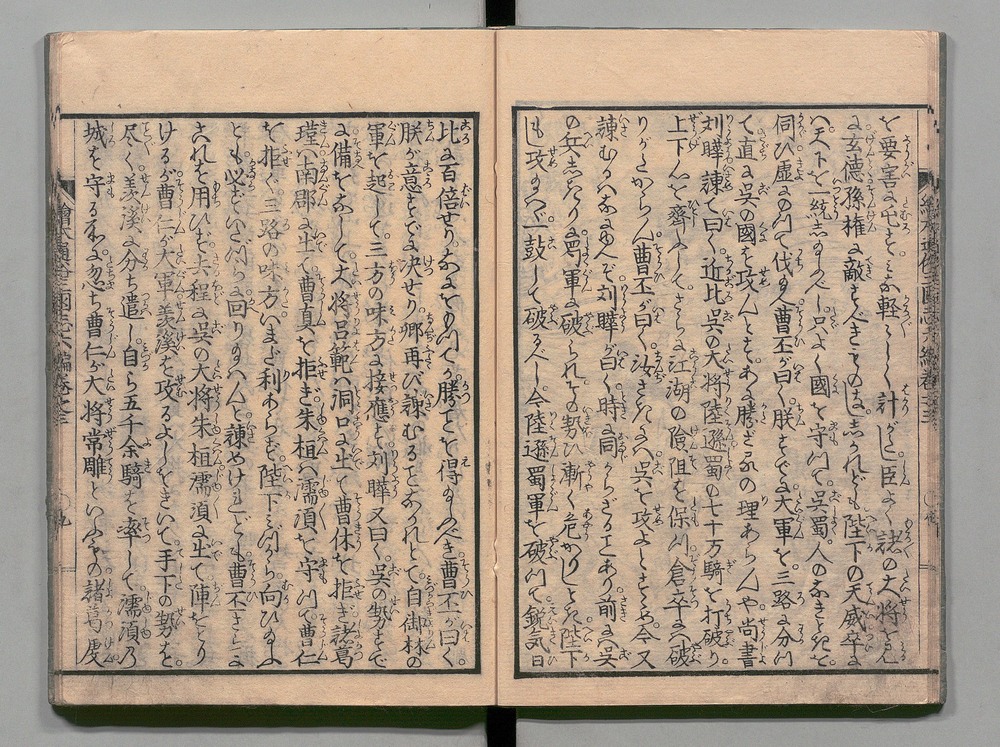 を要害に屯すこと軽々しく計がたし臣よく諸の大将を見
に玄徳孫権に敵すべきものなししかれども陛下の天威卒に
へ天下を一統したまふべし只よく國を守つて呉蜀人のなきを
伺ひ虚にのつて伐たまへ曹丕が曰く朕すでに大軍を三路に分つ
て直に呉の國を攻んとすなんぞ勝ざるの理あらんや尚書
刘曄諫て曰く近比呉の大将陸遜蜀の七十万騎を打破り
上下心を齊ふしてさらに江湖の險阻を保つ倉卒には破
りがたからん曹丕が曰く汝さきには呉を攻よとすゝめ今又
諫むるはなんぞ刘曄が曰く時に同からざることあり前には呉
の兵しきりに蜀軍に破られその勢ひ漸く危かりしとき陛下
もし攻たまへば一鼓して破るべし今陸遜蜀軍を破つて鋭気日
比に百倍せりなにをのつてか勝ことを得たまふべき曹丕が曰く
朕が意すでに决せり卿再び諫むることなかれとて自御林の
軍を起して三方の味方に接應す刘曄又曰く呉の勢すで
に備をなして大将呂範は洞口に出て曹休を拒ぎ諸葛
瑾は南郡に出て曹真を拒ぎ朱桓は濡須を守つて曹仁
を拒く三路の味方いまだ利あらず陛下みづから向ひたまふ
とも必ずいたづらに回りたまはんと諫めけれども曹丕さらに
これを用ひず去程に呉の大将朱桓濡須に出て陣をとり
けるが曹仁が大軍羨溪を攻るよしをきいて手下の勢を
尽く羨溪に分ち遣し自ら五千余騎を率して濡須の
城を守る所に忽ち曹仁が大将常雕といふもの諸葛虔